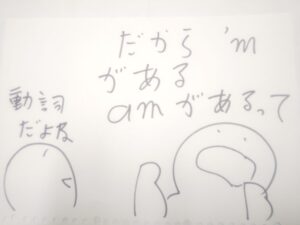 だから 'm
がある
amがあるって
動詞
だよな